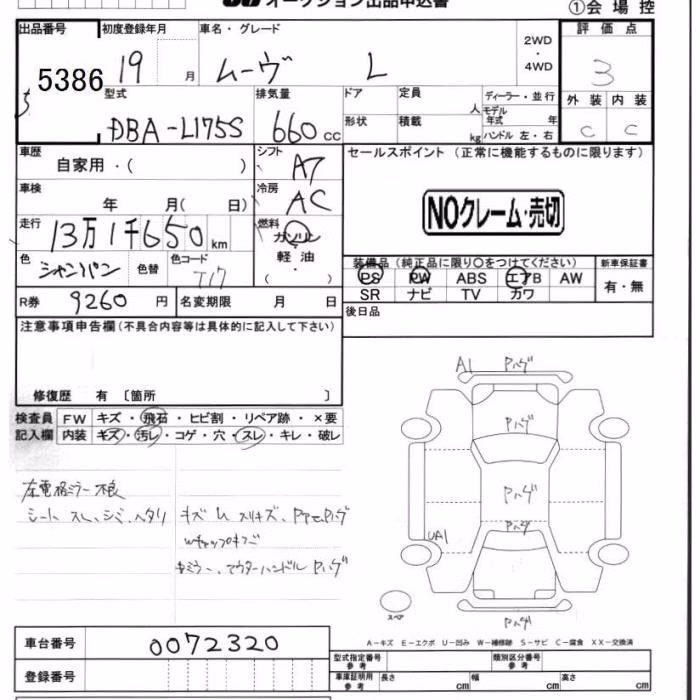 オークション出品申込書 ①会場控
出品番号 初度登録年月 車名・グレード 評価点
5386 19 月 ムーヴ L 2WD・4WD 3
型式 排気量 ドア 定員 人 ディーラー・並行 外装 内装
DBA-L175S 660 cc 形状 積載 kg モデル年式 年 ハンドル 左・右 C C
車歴 自家用・( ) シフト A7 セールスポイント (正常に機能するものに限ります)
車検 年 月( 日) 冷房 AC
NOクレーム・売切
走行 13万1千650km 燃料 ガソリン・軽油・( )
色 シャンパン 色替 色コード T17
装備品 (純正品に限り〇をつけてください) 新車保証書
PS PW ABS エアB AW 有・無
SR ナビ TV カワ
R券 9260円 名変期限 月 日
後日品
注意事項申告欄(不具合内容等は具体的に記入して下さい)
修復歴 有 〔箇所 〕
検査員 FW キズ・飛石・ヒビ割・リペア跡・×要
記入欄 内装 キズ・汚レ・コゲ・穴・スレ・キレ・破レ
左電格ミラー不良
シート スレ、シミ、ヘタリ
キズ ム スリキズ、
Wチップキズ
ミラー、アウターハンドル Pハゲ
A1 Pハゲ
Pハゲ
Pハゲ
Pハゲ
UA1
スペア
Pハゲ
A－キズ E－エクボ U－凹み W－補修跡 S－サビ C－腐食 XX－交換済
車台番号 0072320
型式指定番号 参考 類別区分番号 参考
登録番号
車庫証明用 参考 長さ cm 幅 cm 高さ cm